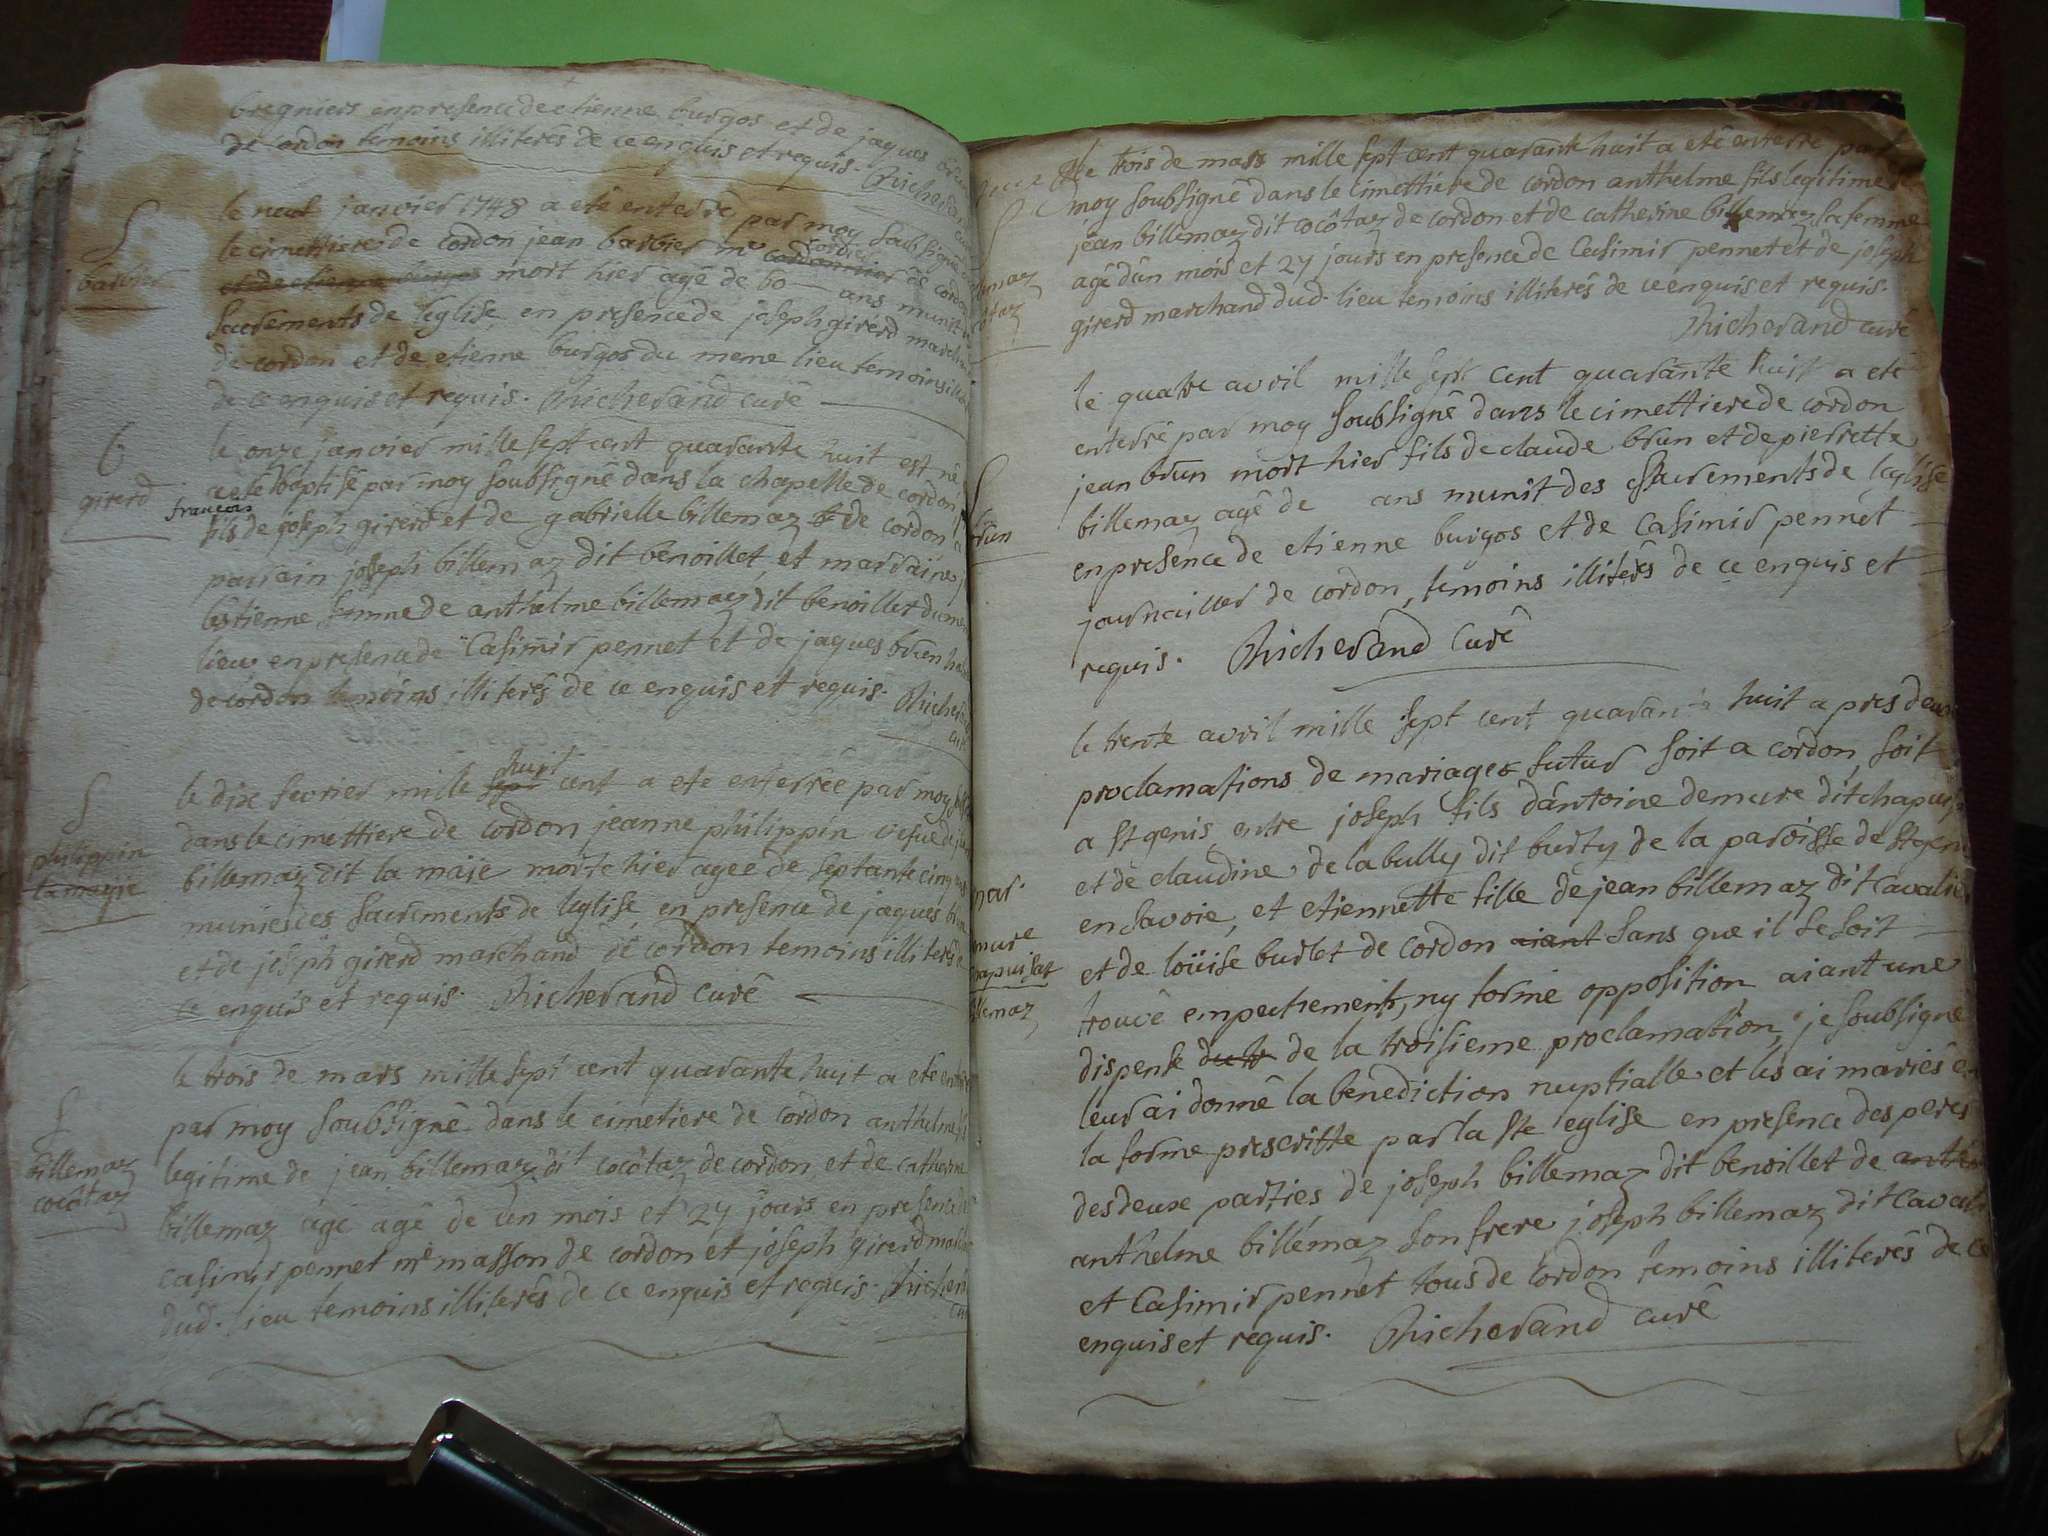 bregniers en presence de etienne burgos et de jaques brun
de cordon temoins illiterés de ce enquis et requis. Richerand curé
S
barbier
le neuf janvier 1748 a eté enterré par moy soubsigné
le cimettiere de cordon jean barbier me cordonnier cordier de cordon
et de etienne burgos mort hier agé de 60 ans munit
sacrements de l'eglise en presence de joseph girerd march
de cordon et de etienne burgos du meme lieu temoins illi
de ce enquis et requis. Richerand curé
b
girerd
le onze janvier mille sept cent quarante huit est né
a eté baptisé par moy soubsigné dans la chapelle de cordon
françois
fils de joseph girerd et de gabrielle billemaz de cordon
parrain joseph billemaz dit benoillet et marraine
bestienne femme de anthelme billemaz dit benoillet du me
lieu en presence de Casimir pennet et de jaques brun
de cordon temoins illiterés de ce enquis et requis. Richer
cu
S
philippin
la mayje
le dix fevrier mille sept huit cent a eté enterrée par moy
dans le cimettiere de cordon jeanne philippin vefue de
billemaz dit la maje morte hier agee de septante cinq
munie des sacrements de l'eglise en presence de jaques
et de joseph girerd marchand de cordon temoins illiterés
ce enquis et requis. Richerand curé
S
billemaz
cocôtaz
le trois de mars mille sept cent quarante huit a eté en
par moy soubsigné dans le cimetiere de cordon anthelme
legitime de jean billemaz dit cocôtaz de cordon et de catherine
billemaz agé agé de un mois et 27 jours en presence
casimir pennet me masson de cordon et joseph girerd
dud. lieu temoins illiterés de ce enquis et requis. Richer
cu
le trois de mars mille sept cent quarante huit a eté enterré par
moy soubsigné dans le cimettiere de cordon anthelme fils legitime
jean billemaz dit cocôtaz de cordon et de catherine billemaz sa femme
agé d'un mois et 27 jours en presence de Casimir pennet et de joseph
girerd marchand dud. lieu temoins illiterés de ce enquis et requis.
Richerand curé
brun
le quatre avril mille sept cent quarante huit a eté
enterré par moy soubsigné dans le cimettiere de cordon
jean brun mort hier fils de claude brun et de pierrette
billemaz agé de ans munit des sacrements de l'eglise
en presence de etienne burgos et de Casimir pennet
journaillier de cordon, temoins illiterés de ce enquis et
requis. Richerand Curé
mar.
mure
hapuisat
lemaz
le trente avril mille sept cent quarante huit a pres deux
proclamations de mariage futur soit a cordon, soit
a St genis, entre joseph fils d'antoine demure dit chapuis
et de claudine de la bully dit burty de la paroisse de St geni
en savoie, et etiennette fille de jean billemaz dit Cavalie
et de loüise burlet de cordon aiant sans que il se soit
trouvé empechement, ny formé opposition aiant une
dispense de la troisieme proclamation, je soubsigné
leur ai donné la benediction nuptialle et les ai mariés en
la forme prescritte par la Ste eglise en presence des peres
des deux parties de joseph billemaz dit benoillet de
anthelme billemaz son frere joseph billemaz dit Caval
et Casimir pennet tous de cordon temoins illiterés de ce
enquis et requis. Richerand curé